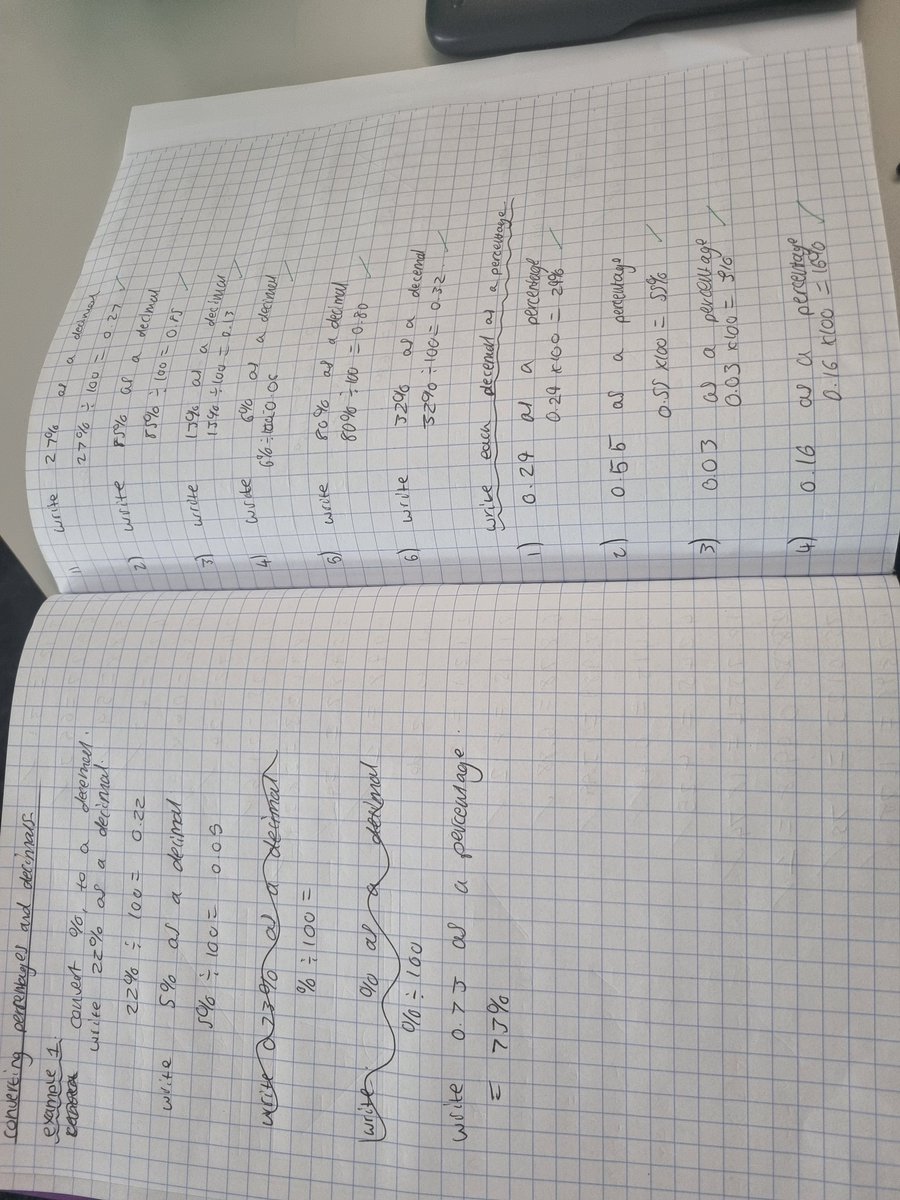 converting percentages and decimals
example 1
convert %, to a decemeel.
write 22% as a decimal.
22% ÷ 100 = 0.22
write 5% as a decimal
5% ÷ 100 = 0.05
write 0.73% as a decimal
% ÷ 100 =
write % as a decimal
% ÷ 100
write 0.75 as a percentage.
= 75%
1) write 27% as a decimal
27% ÷ 100 = 0.27 ✓
2) write 85% as a decimal
85% ÷ 100 = 0.85 ✓
3) write 13% as a decimal
13% ÷ 100 = 0.13 ✓
4) write 6% as a decimal
6% ÷ 100 = 0.06 ✓
5) write 80% as a decimal
80% ÷ 100 = 0.80 ✓
6) write 32% as a decemal
32% ÷ 100 = 0.32 ✓
write each decemal as a percentage.
1) 0.24 as a percentage
0.24 x100 = 24% ✓
2) 0.55 as a percentage
0.55 x100 = 55% ✓
3) 0.03 as a percentage
0.03 x100 = 3% ✓
4) 0.16 as a percentage
0.16 x100 = 16% ✓